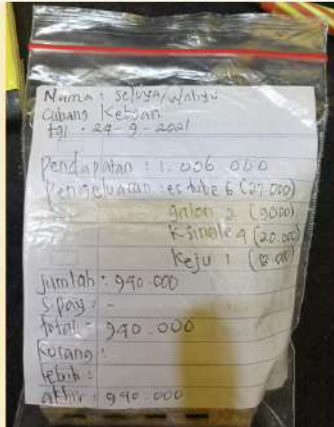 Nama : selvya/wahyu
Cabang Ketoan
tgl : 24-9-2021
Pendapatan : 1.006.000
Pengeluaran : es tube 6 (27.000)
galon 2 (9000)
K-single 4 (20.000)
Keju 1 (12.000)
jumlah : 940.000
S.pay : -
total = 940.000
Kurang :
lebih :
akhir : 940.000